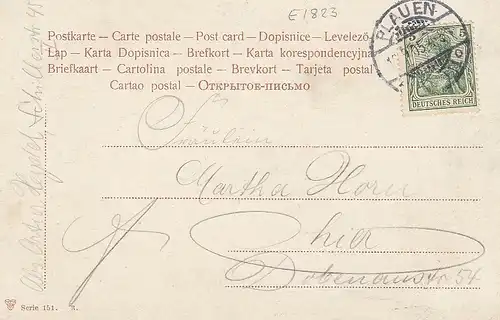 E1823
Postkarte - Carte postale - Post card - Dopisnice - Levelező-
Lap - Karta Dopisnica - Brefkort - Karta korespondencyjna
Briefkaart - Cartolina postale - Brevkort - Tarjeta postal
Cartao postal - ОТКРЫТОЕ-ПИСЬМО
PLAUEN
5
DEUTSCHES REICH
Fräulein
Martha Horn
hier
Dobenaustr. 54
Serie 151.